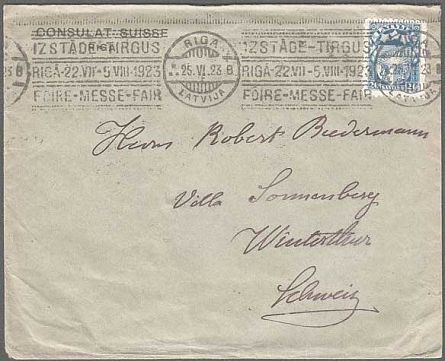 CONSULAT-SUISSE
RIGA
IZSTĀDE-TIRGUS
RIGĀ-22.VII-5.VIII-1923
FOIRE-MESSE-FAIR
RIGA
25.VI.23 B
LATVIJA
IZSTĀDE-TIRGUS
RIGĀ-22.VII-5.VIII-1923
FOIRE-MESSE-FAIR
23 B
LATVIJA
Herrn Robert Biedermann
Villa Sonnenberg
Winterthur
Schweiz